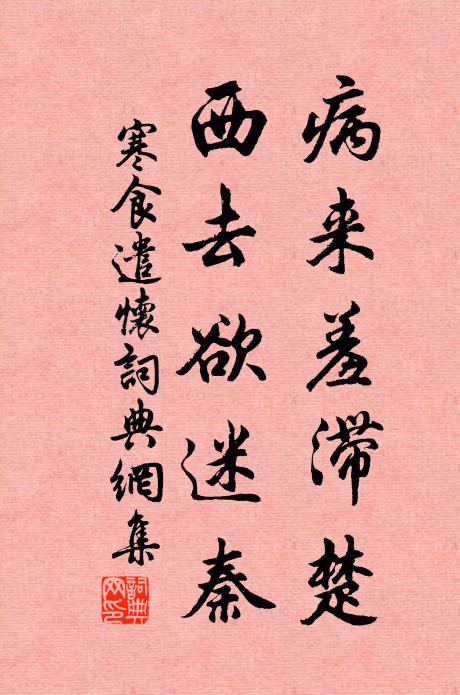 病来羞滞楚
西去欲迷秦
寒食遣懷詞典網集
詞典
网印